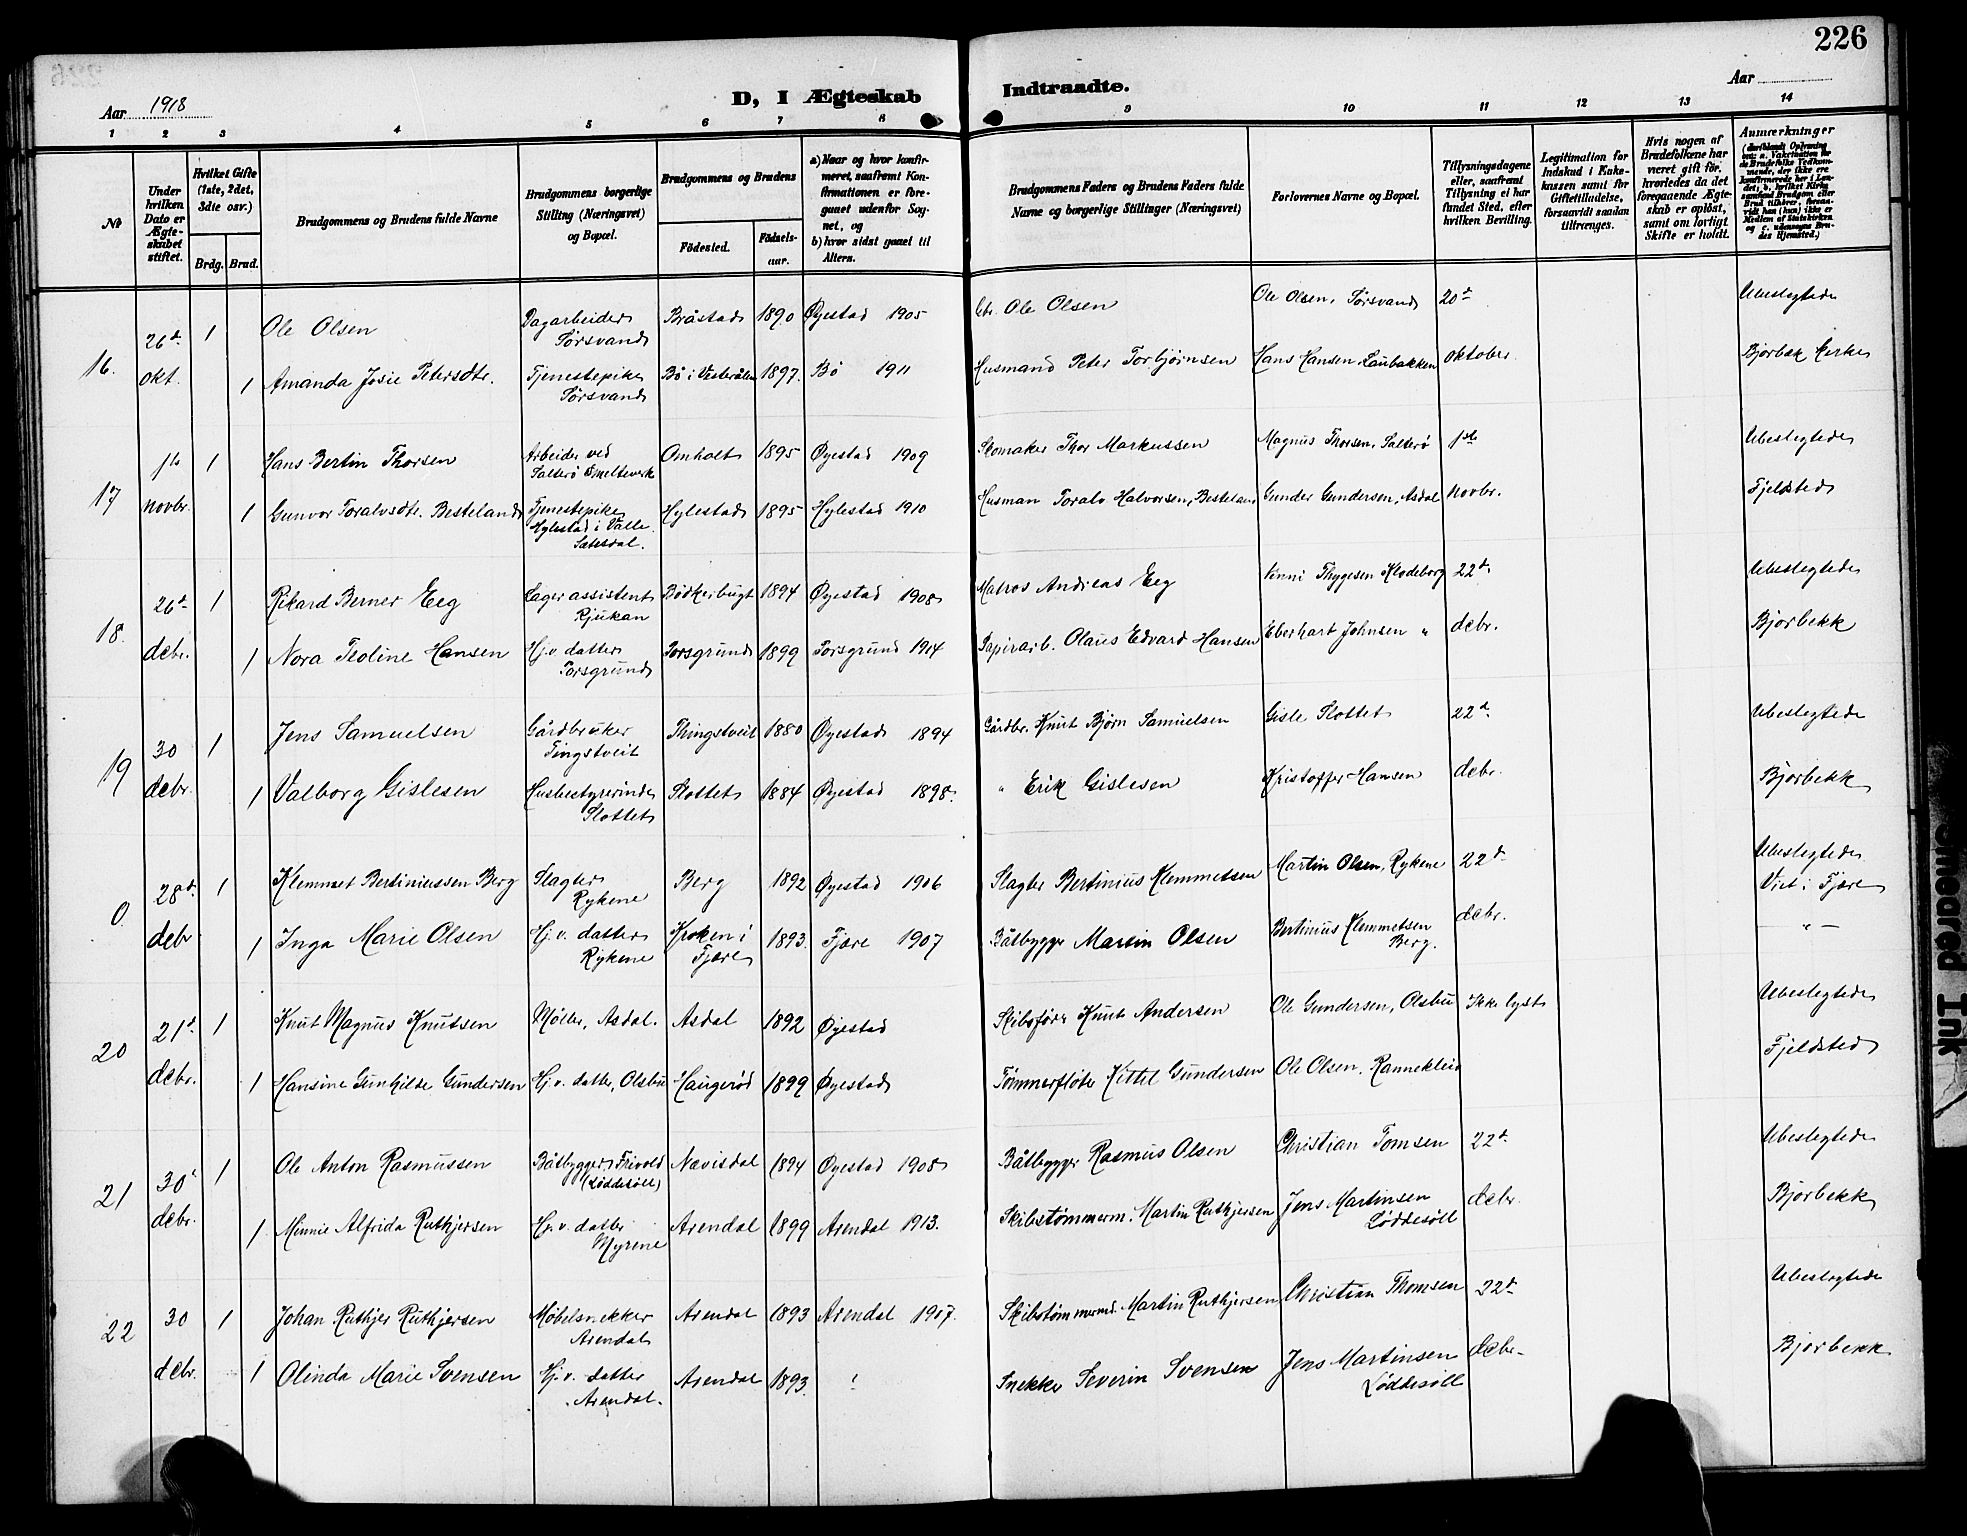 226
Aar 1918
D, I Ægteskab Indtraadte.
Aar
1 2 3 4 5 6 7 8 9 10 11 12 13 14
№
Under hvilken Dato er Ægteskabet stiftet.
Hvilket Gifte (1ste, 2det, 3die osv.)
Brdg. Brud.
Brudgommens og Brudens fulde Navne
Brudgommens borgerlige Stilling (Næringsvei) og Bopæl.
Brudgommens og Brudens
Födested. Födselsaar.
a) Naar og hvor konfirmeret, saafremt Konfirmationen er foregaaet udenfor Sognet, og
b) hvor sidst gaaet til Alters.
Brudgommens Faders og Brudens Faders fulde Navne og borgerlige Stillinger (Næringsvei)
Forlovernes Navne og Bopæl.
Tillysningsdagene eller, saafremt Tillysning ei har fundet Sted, efter hvilken Bevilling.
Legitimation for Indskud i Enkekassen samt for Giftetilladelse, forsaavidt saadan tiltrænges.
Hvis nogen af Brudefolkene har været gift för, hvorledes da det foregaaende Ægteskab er oplöst, samt om lovligt Skifte er holdt.
Anmærkninger
16. 26d. 1 Ole Olsen Dagarbeider Törsvand Bråstad 1890 Øyestad 1905 Ole Olsen Ole Olsen, Törsvand 20d Ubeslegtede
okt. 1 Amanda Josie Petersdtr. Tjenestepike Törsvand Bö i Vesterålen 1897. Bö 1911 Husmand Peter Torbjørnsen Hans Hansen, Laubakken oktober. Bjorbek kirke
17 1ste 1 Hans Bertin Thorsen Arbeider ved Salterö Smelteverk Omholt 1895 Øyestad 1909 Skomaker Thor Markussen Magnus Thorsen, Salterö 1ste Ubeslegtede
novbr. 1 Gunvor Toralvsdtr. Besteland Tjenestepike Hylestad i Valle Sætesdal. Hylestad 1895 Hylestad 1910 Husman Toralv Halvorsen, Besteland Gunder Gundersen, Asdal novbr. Fjeldsted
18. 26d. 1 Rikard Berner Eeg Lagerassistent Rjukan Bödkerbugt 1894 Øyestad 1908 Matros Andreas Eeg Thygesen Klodeborg 22d. Ubeslegtede
debr. 1 Nora Teoline Hansen Hj.v. datter Porsgrund Porsgrund 1899 Porsgrund 1914 Papirarb. Olaus Edvard Hansen Eberhart Johnsen " debr. Bjorbekk
19 30 1 Jens Samuelsen Gårdbruker Tingstveit Thingstveit 1880 Øyestad 1894 Gårdbr. Knut Bjørn Samuelsen Gisle Slottet 22d. Ubeslegtede
debr. 1 Valborg Gislesen Husbestyrerinde Slottet Slottet 1884 Øyestad 1898. " Erik Gislesen Kristoffer Hansen debr. Bjorbekk
0 28d. 1 Klemmet Bertiniussen Berg Slagter Rykene Berg 1892 Øyestad 1906 Slagter Bertinius Klemmetsen Martin Olsen, Rykene 22d. Ubeslegtede Viet i Fjære
debr 1 Inga Marie Olsen Hj.v. datter Rykene Kroken i Fjære 1893. Fjære 1907 Båtbygger Martin Olsen Bertinius Klemmetsen Berg. debr. — " —
20 21d. 1 Knut Magnus Knutsen Møller, Asdal. Asdal 1892 Øyestad Skibsfører Knut Andersen Ole Gundersen, Olsbu Ikke lyst Ubeslegtede
debr. 1 Hansine Gunhilde Gundersen Hj.v. datter, Olsbu Haugeröd 1899 Øyestad Tømmerfløter Kittil Gundersen Ole Olsen. Rannekleiv Fjeldsted
21 30d 1 Ole Anton Rasmussen Båtbygger, Frivold (Løddesöll) Navisdal 1894 Øyestad 1908 Båtbygger Rasmus Olsen Christian Tomsen 22d. Ubeslegtede
debr. 1 Minnie Alfrida Ruthjersen Hj.v. datter Myrene Arendal 1899 Arendal 1913. Skibstømmerm. Martin Ruthjersen Jens Martinsen Løddesöll debr. Bjorbekk
22 30 1 Johan Ruthjer Ruthjersen Møbelsnekker Arendal Arendal 1893 Arendal 1907. Skibstømmermd. Martin Ruthjersen Christian Thomsen 22d. Ubeslegtede
debr. 1 Olinda Marie Svensen Hj.v. datter Arendal. Arendal 1893. ! Snekker Severin Svensen Jens Martinsen Løddesöll debr. Bjorbekk
Smeared Ink